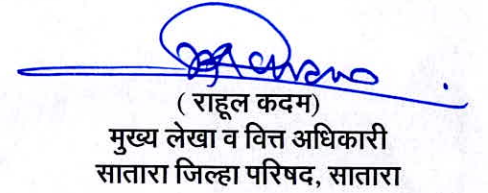 ( राहूल कदम)
मुख्य लेखा व वित्त अधिकारी
सातारा जिल्हा परिषद, सातारा